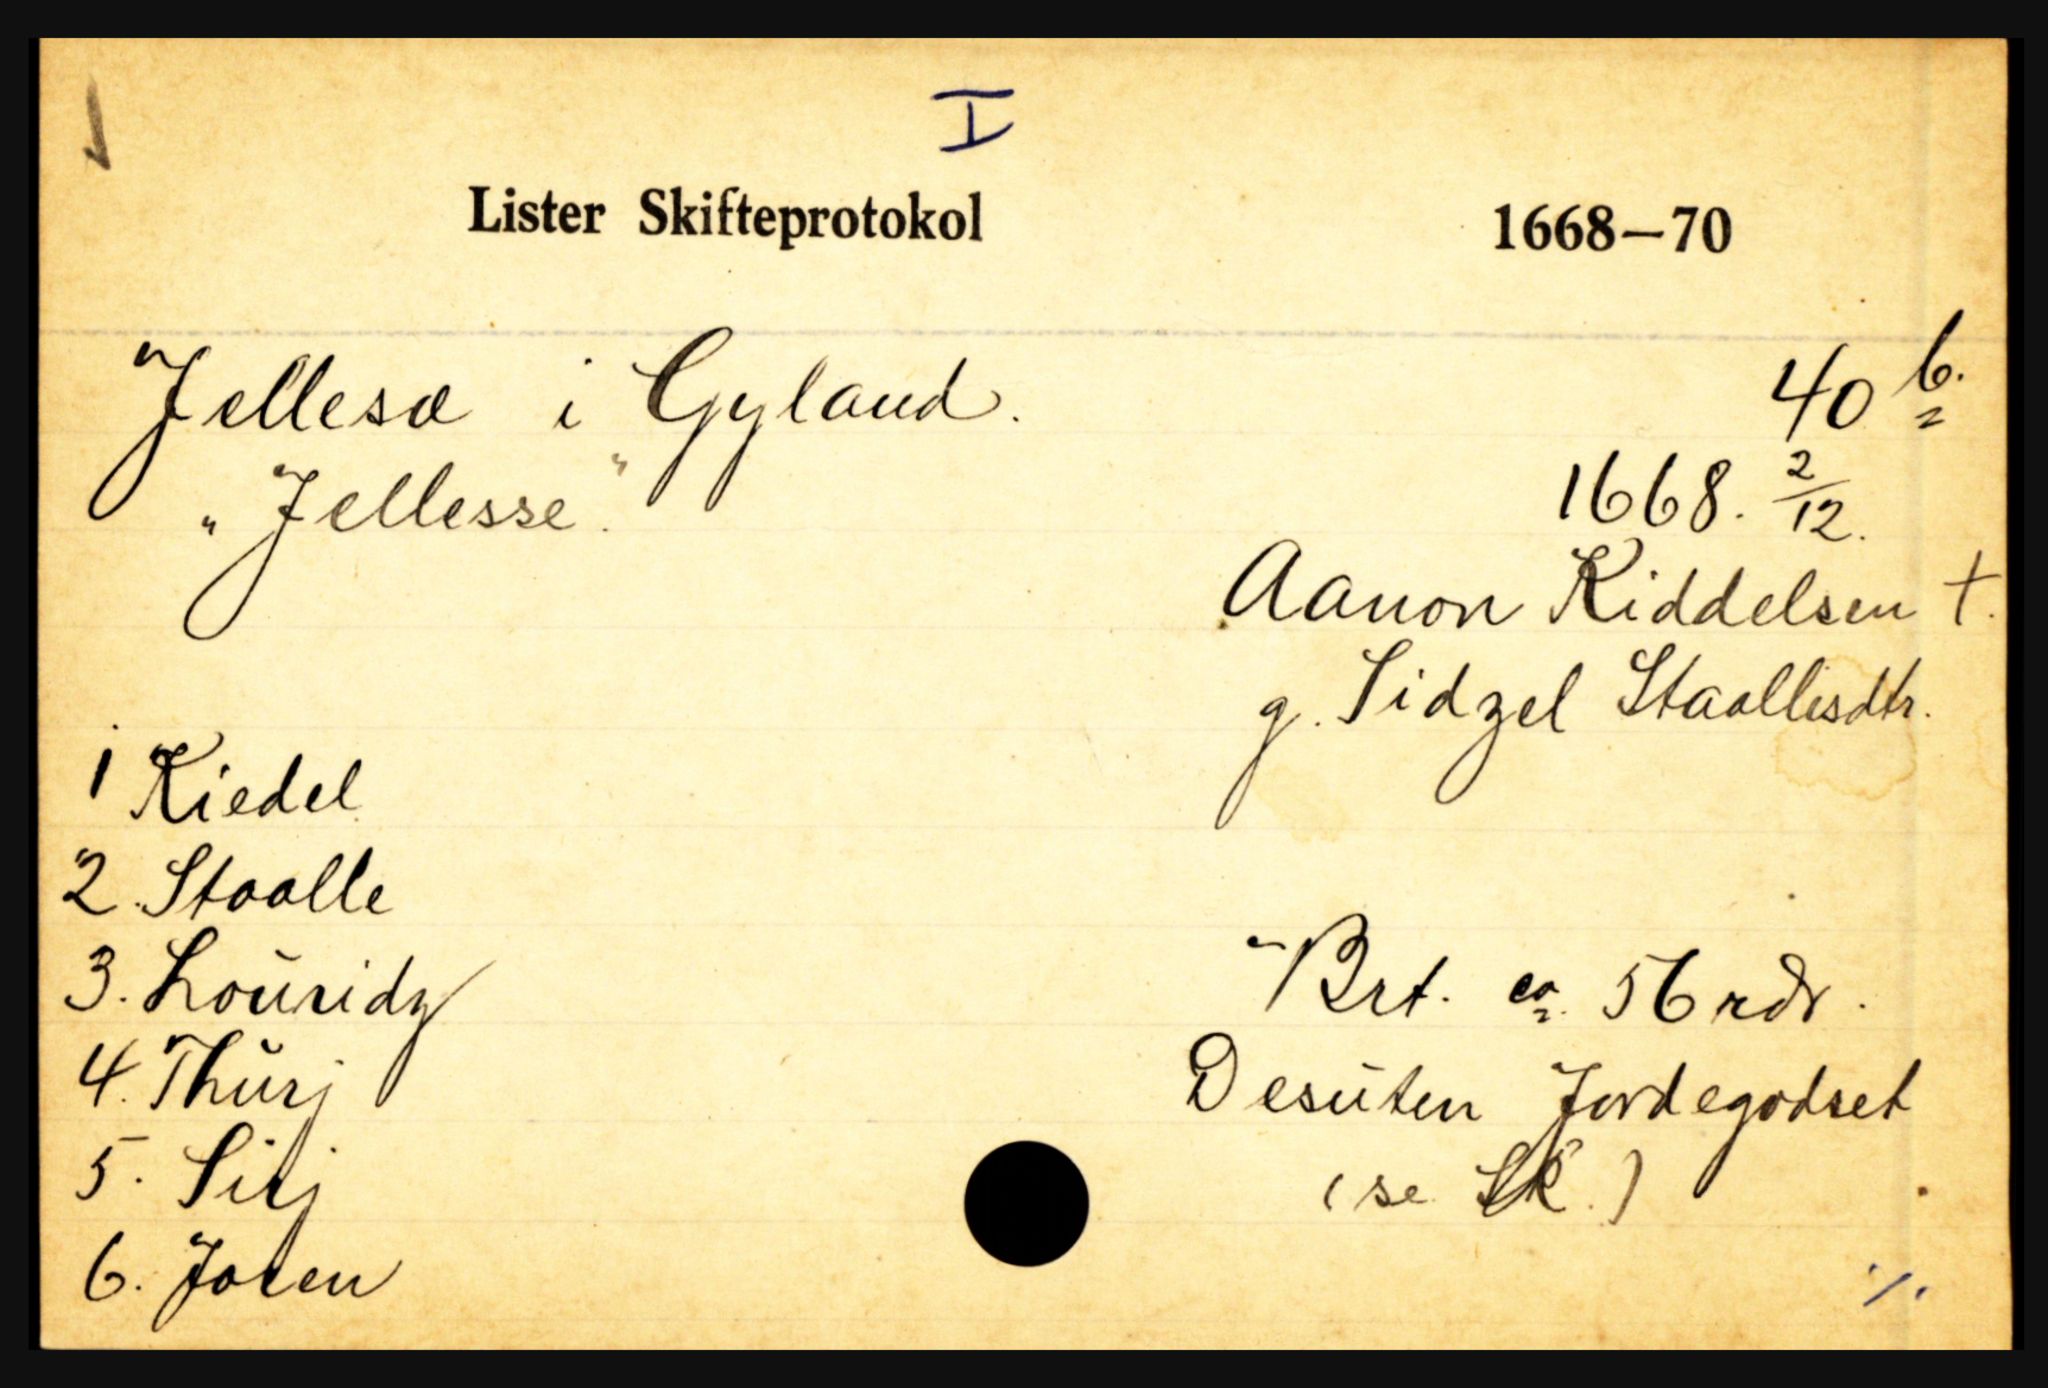 I
Lister Skifteprotokol 1668—70
Jellesæ i Gyland. 40 b.
"Jellesse". 1668. 2/12.
Aanon Kiddelsen †.
g. Sidzel Staallesdtr.
1 Kiedel
2. Staalle
3. Louridz
4. Thurj
5. Sirj
6. Joren
Brt. ca. 56 rdr.
Desuten Jordegodset
(se Sk.)